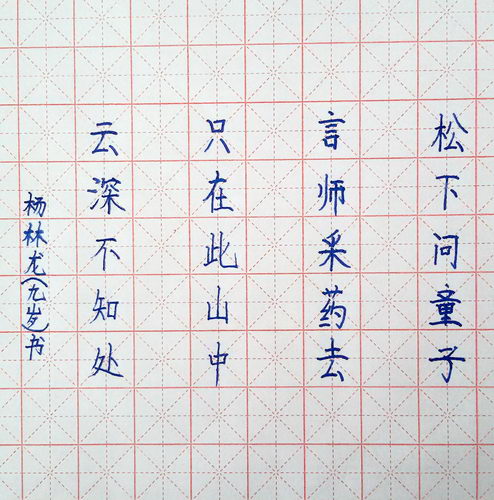 松下问童子
言师采药去
只在此山中
云深不知处
杨林龙(九岁)书